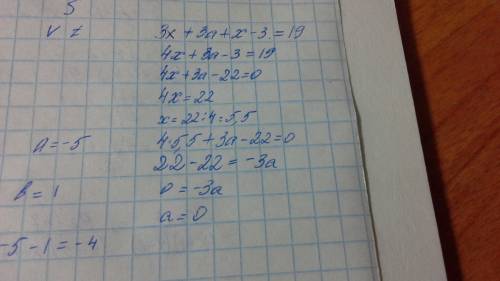 5
V ≠
a = -5
b = 1
-5 - 1 = -4
3x + 3a + x - 3 = 19
4x + 3a - 3 = 19
4x + 3a - 22 = 0
4x = 22
x = 22 : 4 = 5,5
4·5,5 + 3a - 22 = 0
22 - 22 = -3a
0 = -3a
a = 0